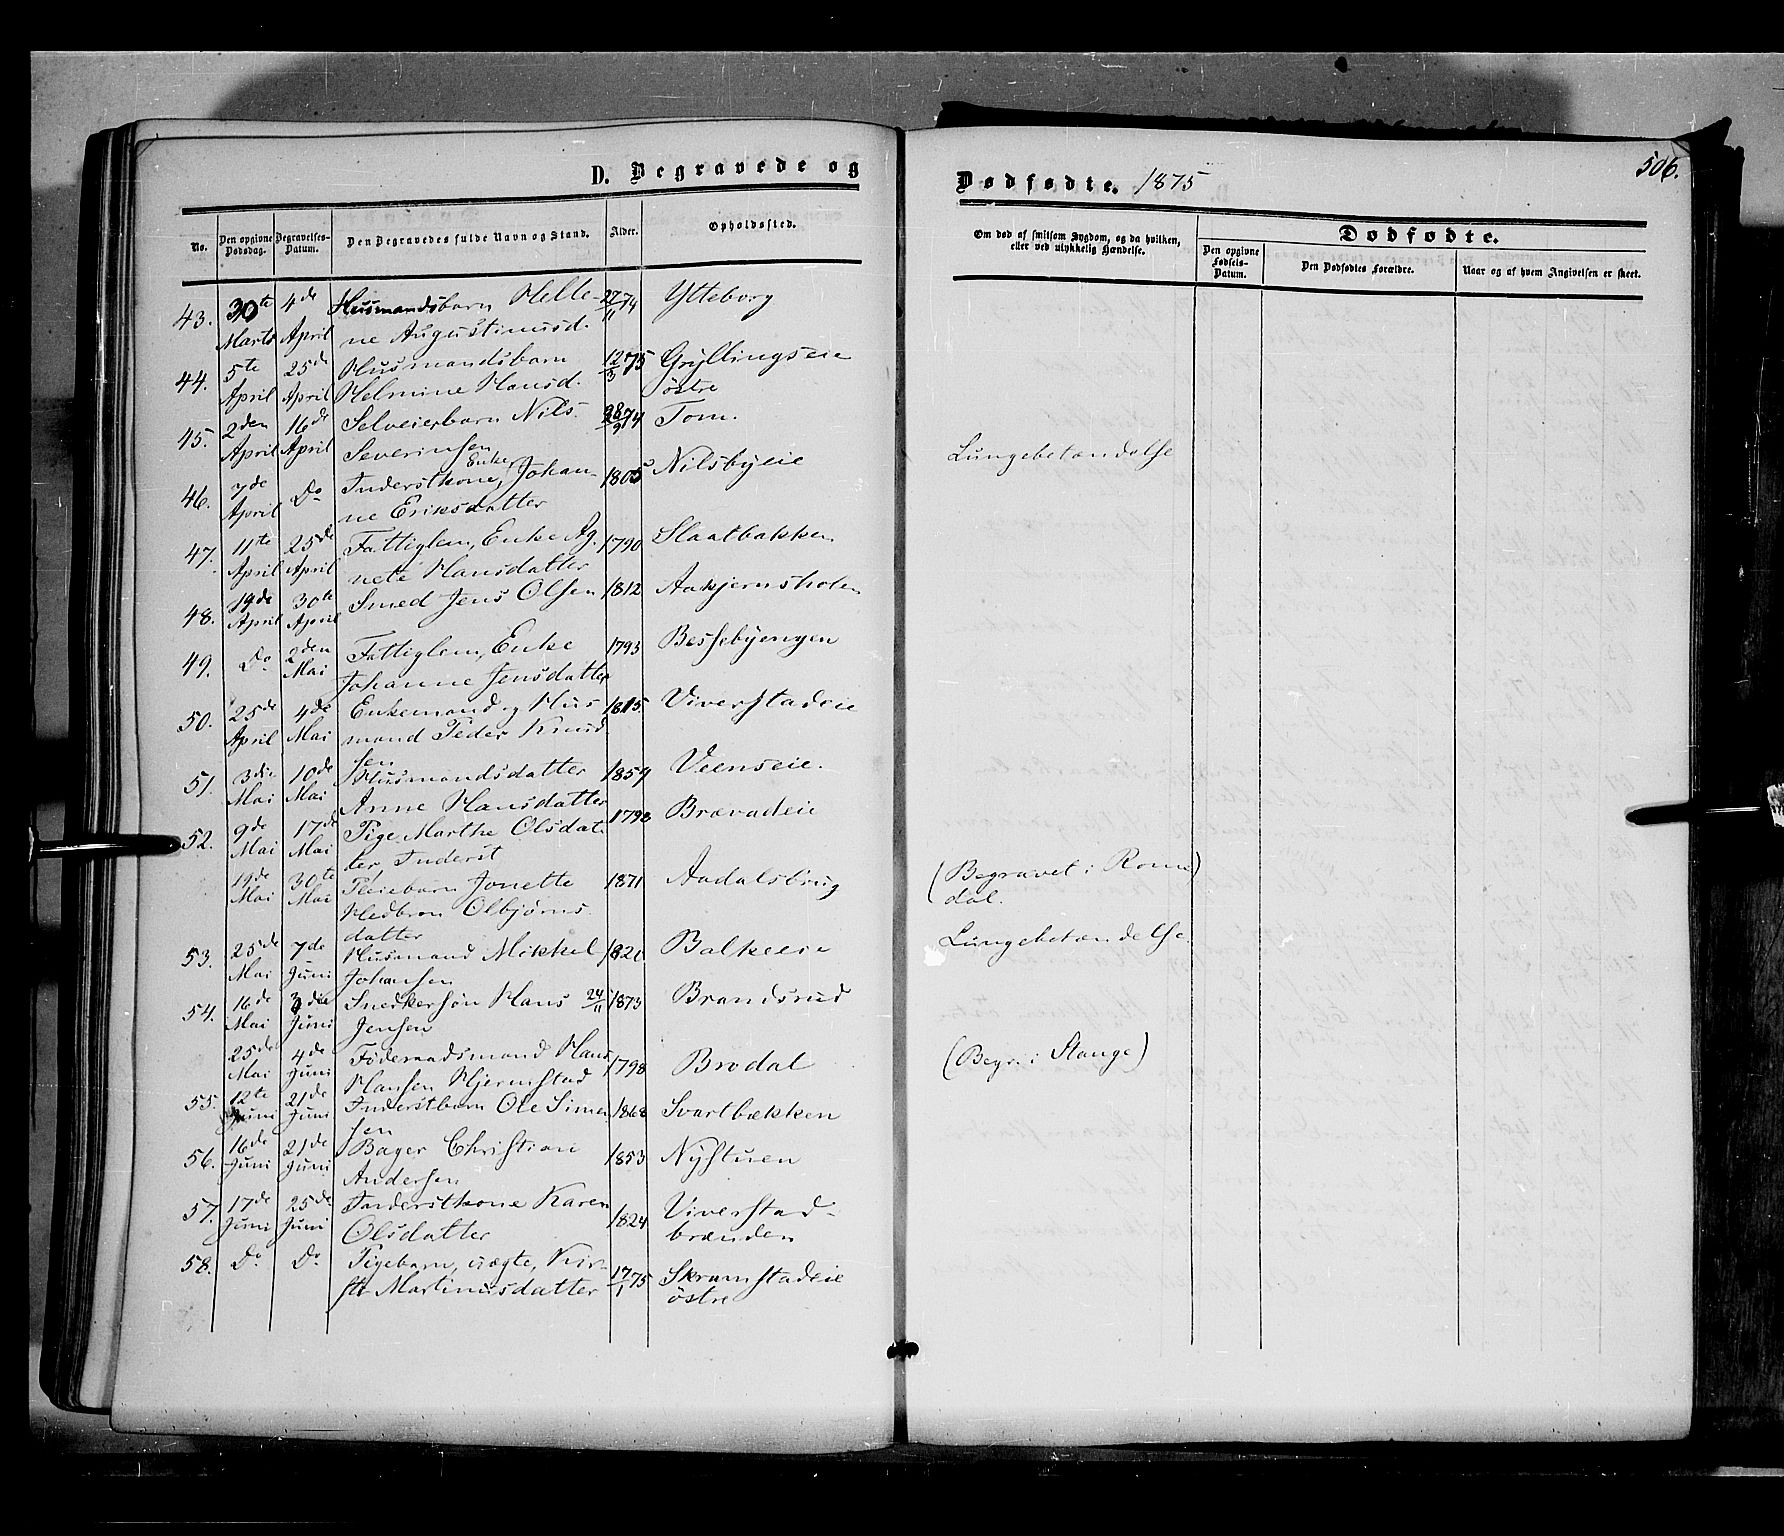 D. Begravede og
Dødfødte. 1875
506.
No. Den opgivne Dødsdag. Begravelses-Datum. Den Begravedes fulde Navn og Stand. Alder. Opholdssted.
Om død af smitsom Sygdom, og da hvilken, eller ved ulykkelig Hændelse.
Dødfødte.
Den opgivne Fødsels-Datum. Den Dødfødtes Forældre. Naar og af hvem Angivelsen er skeet.
43. 30te 4de Husmandsbarn Helle- 27/11 74 Ytteborg
Marts April ne Augustinusd.
44. 5te 25de Husmandsbarn 12/3 75 Gryllingseie
April April Helmine Hansd. östre
45. 2den 16de Selveierbarn Nils 28/9 74 Tom.
April April Severinsen Lungebetændelse
46. 7de Do Inderstkone, Enke, Johan- 1805 Nilsbyeie
April ne Eriksdatter
47. 11te 25de Fattiglem, Enke Ag- 1790 Slaatbakken
April April nete Hansdatter
48. 19de 30te Smed Jens Olsen 1812 Aakjernsholen
April April
49. Do 2den Fattiglem, Enke 1793 Bessebyengen
Mai Johanne Jensdatter
50. 25de 4de Enkemand og Hus- 1815. Viverstadeie
April Mai mand Peder Knud
sen
51. 3die 10de Husmandsdatter 1859 Veenseie.
Mai Mai Anne Hansdatter
52. 9de 17de Pige Marthe Olsdat- 1798 Brævadeie
Mai Mai ter, Inderst
19de 30te Pleiebarn Jonette 1871 Aadalsbrug (Begravet i Roms)
Mai Mai Hedbron Olbjørns- dal.
datter
53. 25de 7de Husmand Mikkel 1821 Balkeeie Lungebetændelse.
Mai Juni Johansen
54. 16de 3die Snedkersøn Hans 24/11 1873 Brandsrud
Mai Juni Jensen
25de 4de Föderaadsmand Hans 1798 Brodal (Begr. i Stange)
Mai Juni Hansen Hjermstad
55. 12te 21de Inderstbarn Ole Simen 1868 Svartbækken
Juni Juni sen
56. 16de 21de Bager Christian 1853 Nystuen
Juni Juni Andersen
57. 17de 25de Inderstkone Karen 1824 Viverstad-
Juni Juni Olsdatter brænden
58. Do Do Pigebarn, uægte, Kir- 17/1 75 Skramstadeie
sti Martinusdatter östre